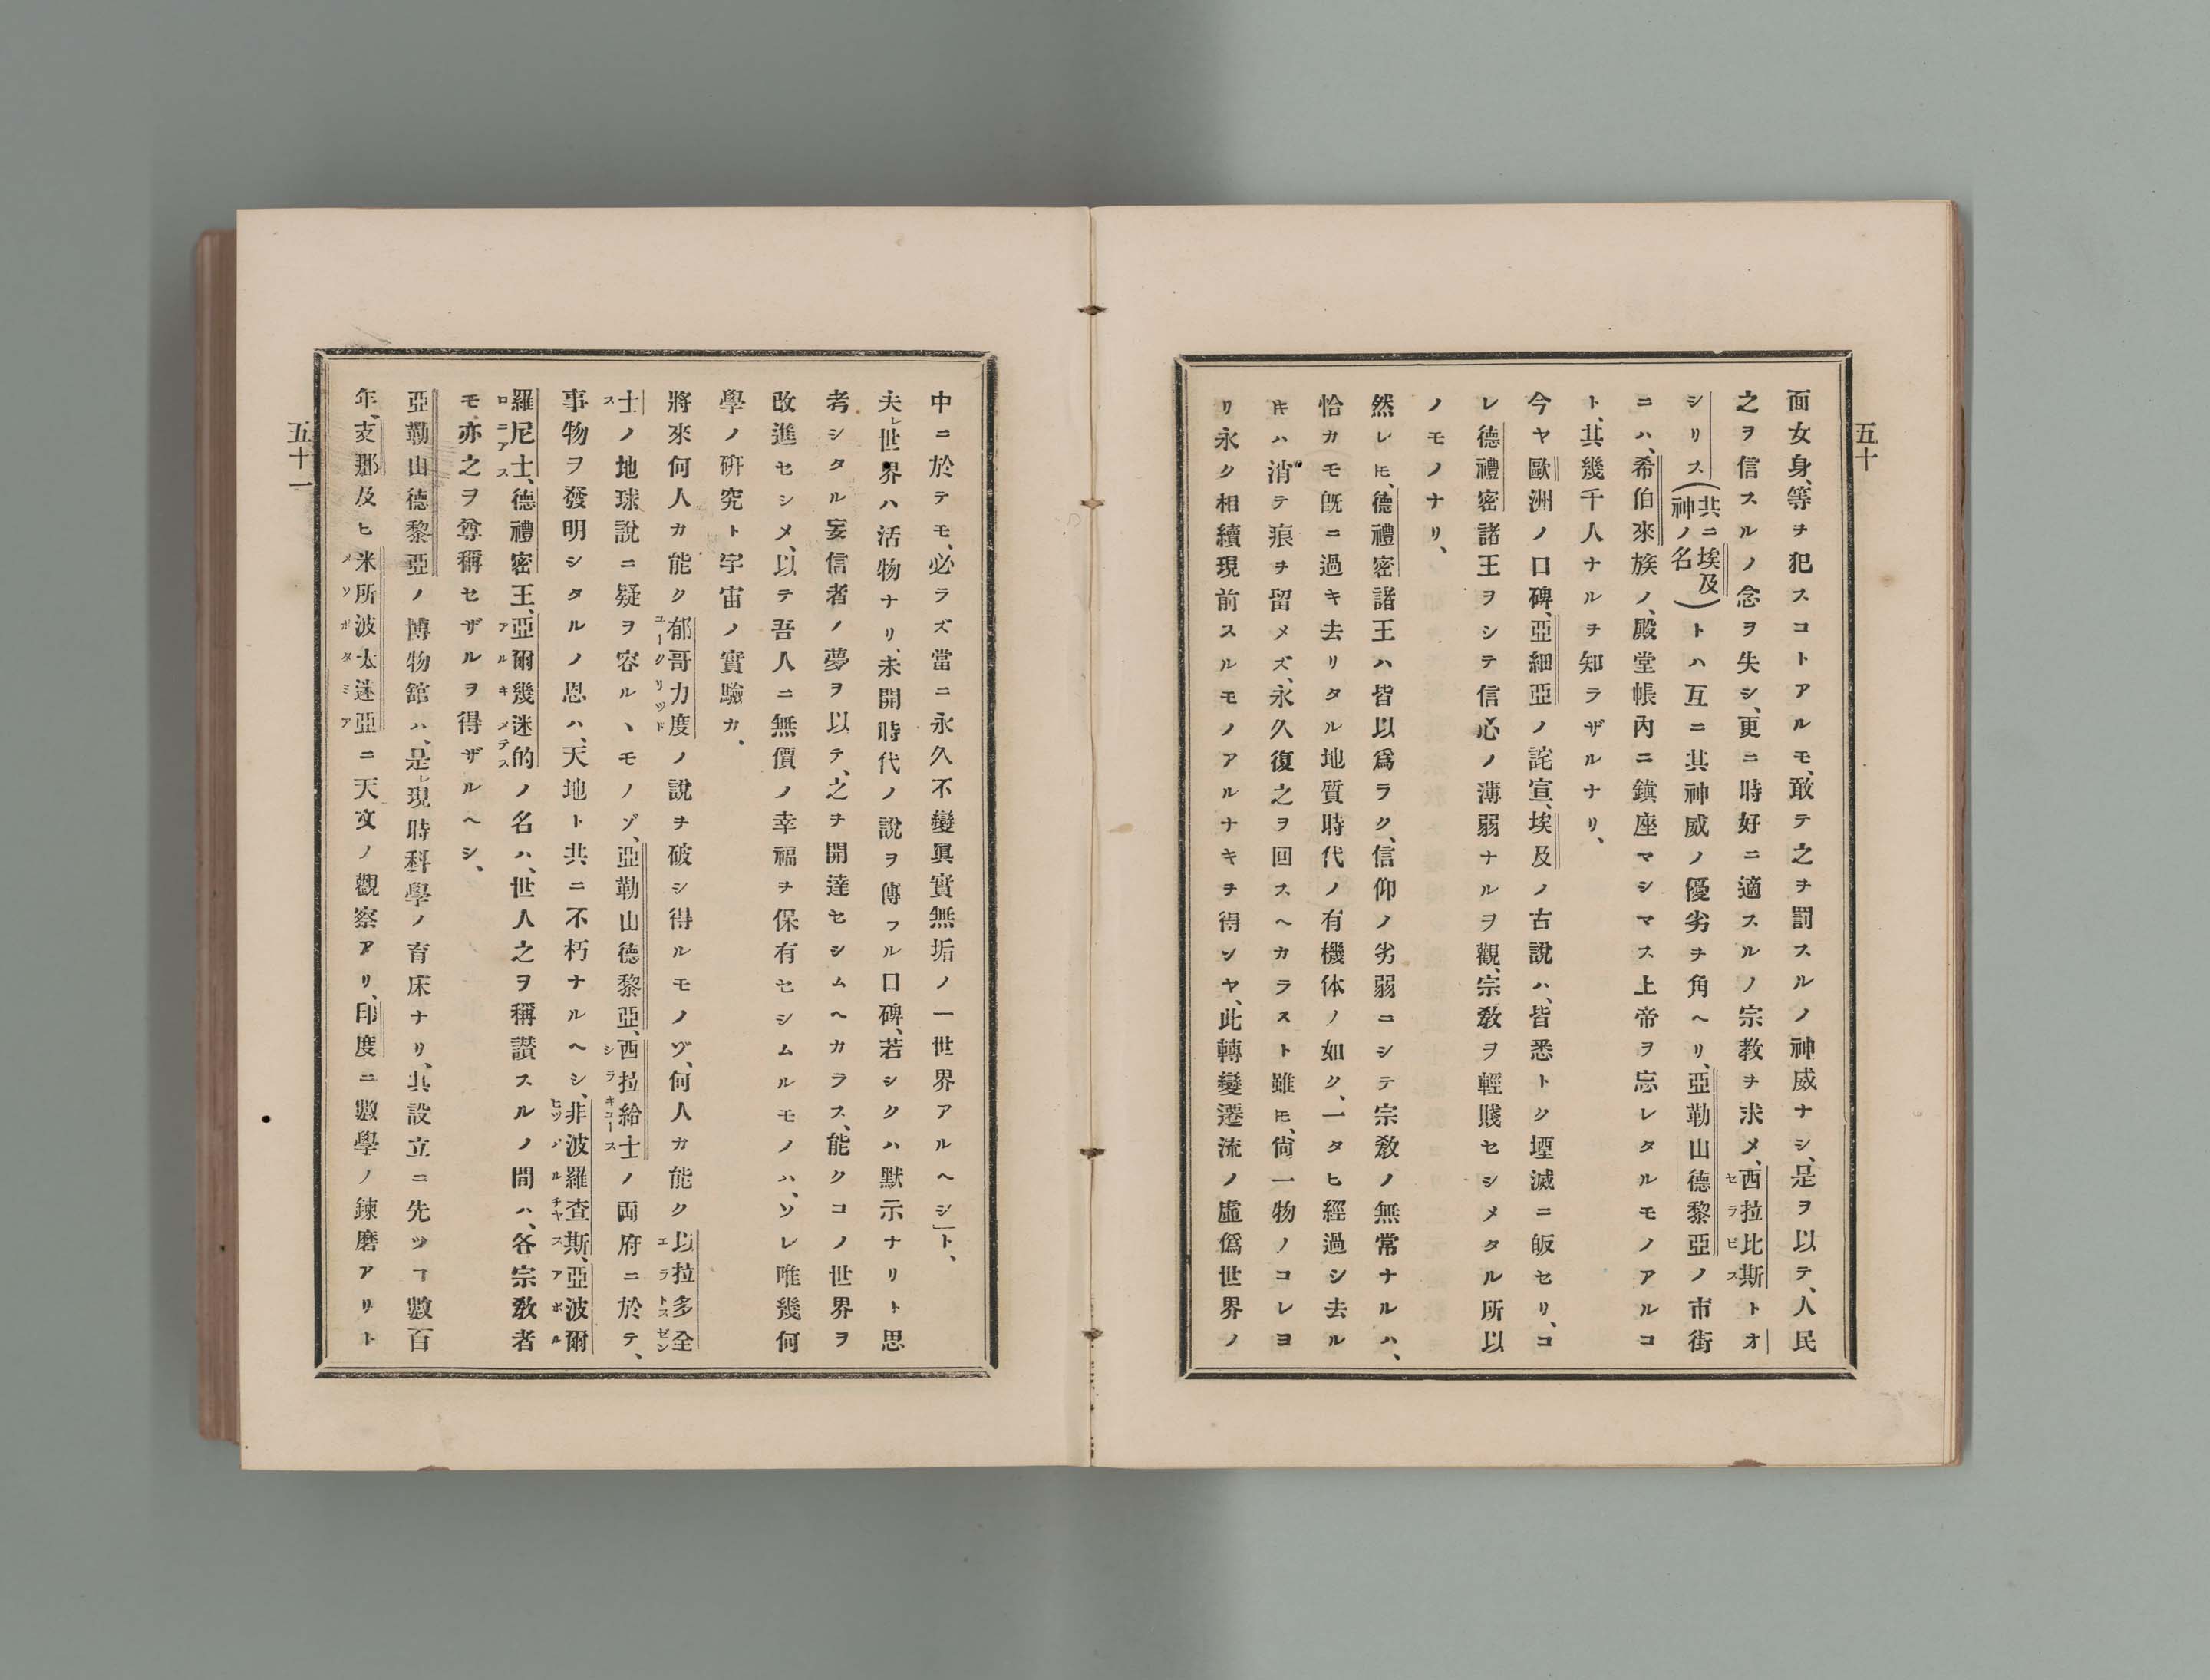 五十
面女身、等ヲ犯スコトアルモ、敢テ之ヲ罰スルノ神威ナシ、是ヲ以テ、人民
之ヲ信スルノ念ヲ失シ、更ニ時好ニ適スルノ宗教ヲ求メ、西拉比斯トオ
セラビス
シリス(共ニ埃及神ノ名)トハ互ニ其神威ノ優劣ヲ角ヘリ、亞勒山德黎亞ノ市街
ニハ、希伯來族ノ、殿堂帳內ニ鎭座マシマス上帝ヲ忘レタルモノアルコ
ト、其幾千人ナルヲ知ラザルナリ、
今ヤ歐洲ノ口碑、亞細亞ノ詫宣、埃及ノ古說ハ、皆悉トク堙滅ニ皈セリ、コ
レ德禮密諸王ヲシテ信心ノ薄弱ナルヲ觀、宗敎ヲ輕賤セシメタル所以
ノモノナリ、
然レ𪜈、德禮密諸王ハ皆以爲ラク、信仰ノ劣弱ニシテ宗敎ノ無常ナルハ、
恰カモ既ニ過キ去リタル地質時代ノ有機体ノ如ク、一タヒ經過シ去ル
𪜈ハ消テ痕ヲ留メズ、永久復之ヲ回スヘカラスト雖𪜈、尙一物ノコレヨ
リ永ク相續現前スルモノアルナキヲ得ンヤ、此轉變遷流ノ虛僞世界ノ
中ニ於テモ、必ラズ當ニ永久不變眞實無垢ノ一世界アルヘシ」ト、
夫レ世界ハ活物ナリ、未開時代ノ說ヲ傳フル口碑、若シクハ默示ナリト思
考シタル妄信者ノ夢ヲ以テ、之ヲ開達セシムヘカラス、能クコノ世界ヲ
改進セシメ、以テ吾人ニ無價ノ幸福ヲ保有セシムルモノハ、ソレ唯幾何
學ノ硏究ト宇宙ノ實驗カ、
將來何人カ能ク郁哥力度ノ說ヲ破シ得ルモノゾ、何人カ能ク以拉多全
ユークリッド
エラトスゼン
士ノ地球說ニ疑ヲ容ルヽモノゾ、亞勒山德黎亞、西拉給士ノ両府ニ於テ、
ス
シラキユース
事物ヲ發明シタルノ恩ハ、天地ト共ニ不朽ナルヘシ、非波羅查斯、亞波爾
ヒツパルチヤス
アポル
羅尼士、德禮密王、亞爾幾迷的ノ名ハ、世人之ヲ稱讃スルノ間ハ、各宗敎者
ロニアス
アルキメテス
モ亦之ヲ尊稱セザルヲ得ザルヘシ、
亞勒山德黎亞ノ博物舘ハ、是レ現時科學ノ育床ナリ、其設立ニ先ツヿ數百
年、支那及ヒ米所波太迷亞ニ天文ノ觀察アリ、印度ニ數學ノ鍊磨アリト
メソポタミア
五十一